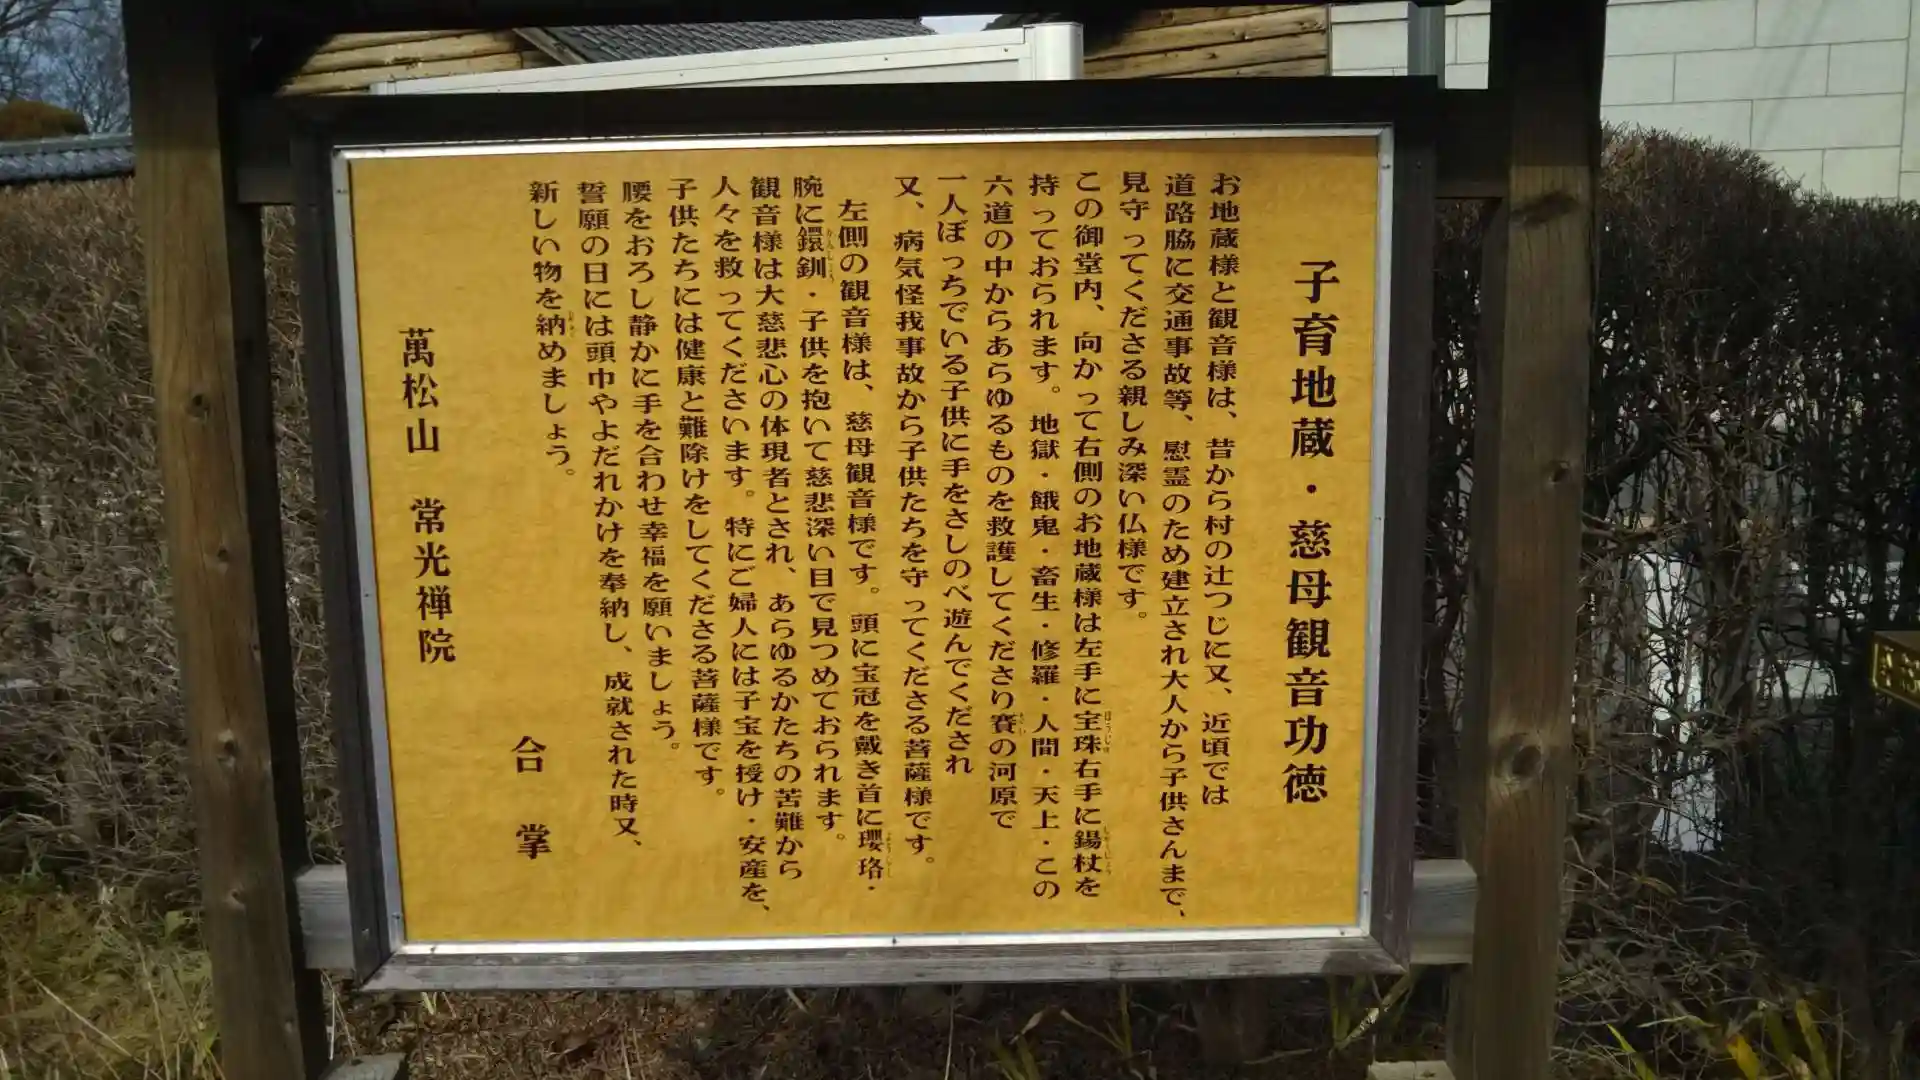 子育地蔵・慈母観音功徳
お地蔵様と観音様は、昔から村の辻つじに又、近頃では
道路脇に交通事故等、慰霊のため建立され大人から子供さんまで、
見守ってくださる親しみ深い仏様です。
この御堂内、向かって右側のお地蔵様は左手に宝珠右手に錫杖を
持っておられます。地獄・餓鬼・畜生・修羅・人間・天上・この
六道の中からあらゆるものを救護してくださり賽の河原で
一人ぼっちでいる子供に手をさしのべ遊んでくだされ
又、病気怪我事故から子供たちを守ってくださる菩薩様です。
左側の観音様は、慈母観音様です。頭に宝冠を戴き首に瓔珞・
腕に鐶釧・子供を抱いて慈悲深い目で見つめておられます。
観音様は大慈悲心の体現者とされ、あらゆるかたちの苦難から
人々を救ってくださいます。特にご婦人には子宝を授け・安産を、
子供たちには健康と難除けをしてくださる菩薩様です。
腰をおろし静かに手を合わせ幸福を願いましょう。
誓願の日には頭巾やよだれかけを奉納し、成就された時又、
新しい物を納めましょう。
合掌
萬松山 常光禅院